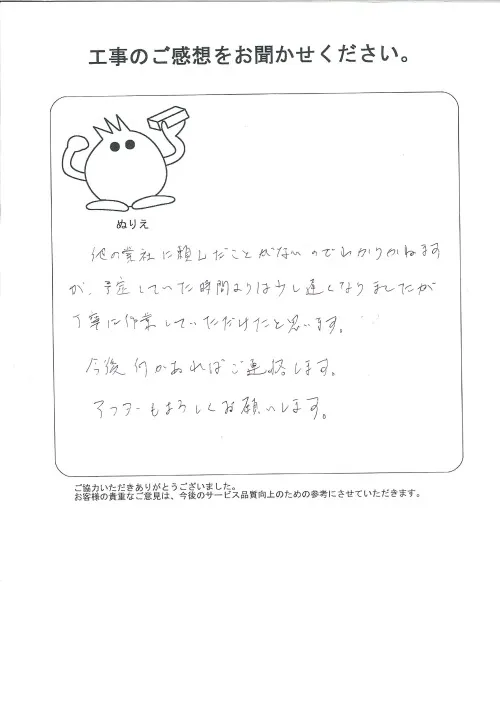 工事のご感想をお聞かせください。
ぬりえ
他の業社に頼んだことがないのでわかりかねます
が、予定していた時間よりは少し遅くなりましたが
丁寧に作業していただけたと思います。
今後何かあればご連絡します。
アフターもよろしくお願いします。
ご協力いただきありがとうございました。
お客様の貴重なご意見は、今後のサービス品質向上のための参考にさせていただきます。